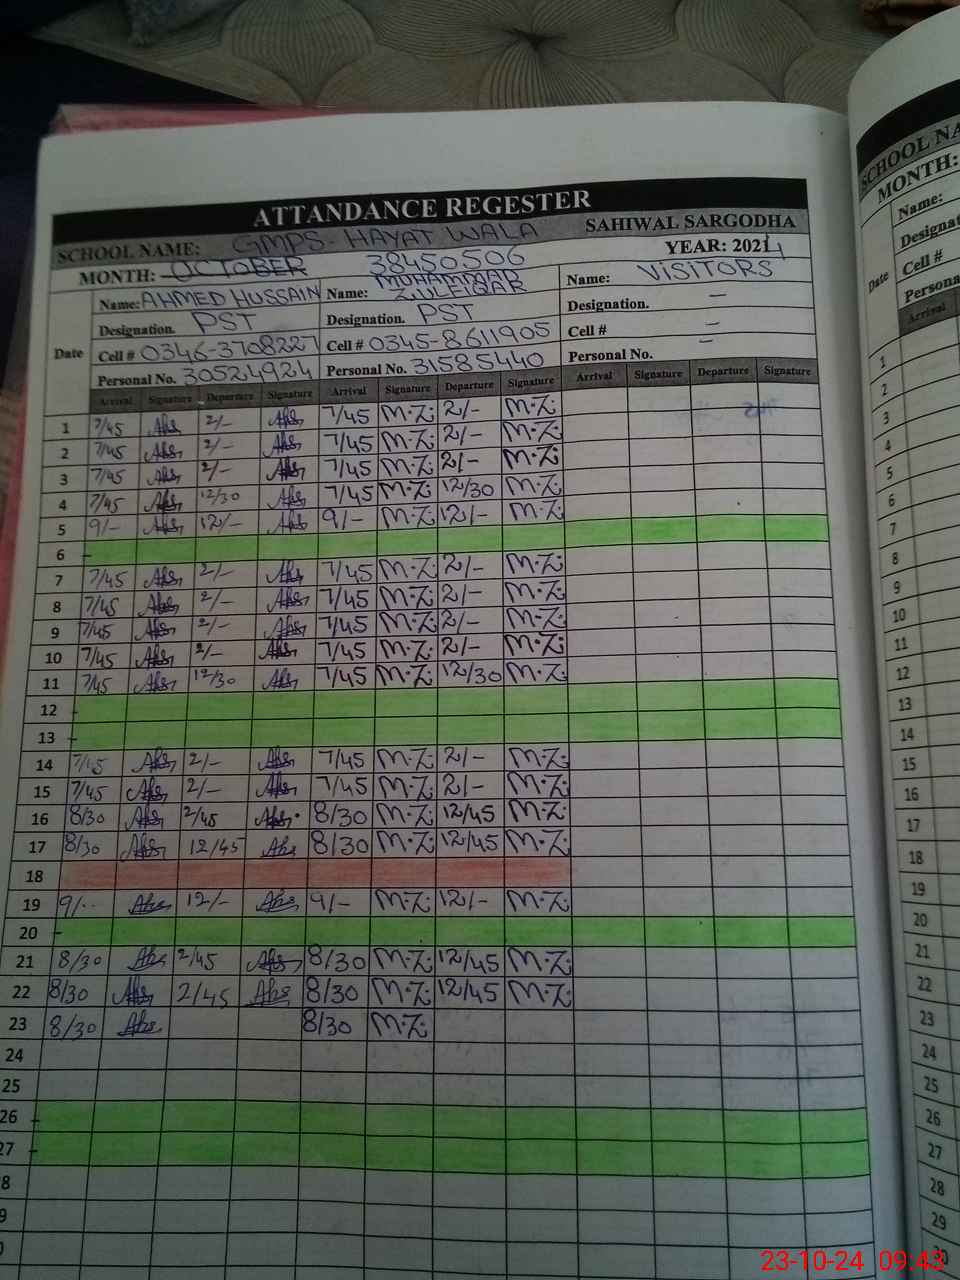 ATTANDANCE REGESTER
SCHOOL NAME: GMPS. HAYAT WALA SAHIWAL SARGODHA
MONTH: OCTOBER 38450506 YEAR: 2024
Name: AHMED HUSSAIN Name: MUHAMMAD ZULFIQAR Name: VISITORS
Designation. PST Designation. PST Designation. —
Date Cell # 0346-3708227 Cell # 0345-8611905 Cell # —
Personal No. 30524924 Personal No. 31585440 Personal No. —
Arrival Signature Departure Signature Arrival Signature Departure Signature Arrival Signature Departure Signature
1 7/45 Ahs 2/- Ahs 7/45 M.Z. 2/- M.Z.
2 7/45 Ahs 2/- Ahs 7/45 M.Z. 2/- M.Z.
3 7/45 Ahs 2/- Ahs 7/45 M.Z. 2/- M.Z.
4 7/45 Ahs 12/30 Ahs 7/45 M.Z. 12/30 M.Z.
5 9/- Ahs 12/- Ahs 9/- M.Z. 12/- M.Z.
6 -
7 7/45 Ahs 2/- Ahs 7/45 M.Z. 2/- M.Z.
8 7/45 Ahs 2/- Ahs 7/45 M.Z. 2/- M.Z.
9 7/45 Ahs 2/- Ahs 7/45 M.Z. 2/- M.Z.
10 7/45 Ahs 2/- Ahs 7/45 M.Z. 2/- M.Z.
11 7/45 Ahs 12/30 Ahs 7/45 M.Z. 12/30 M.Z.
12 -
13 -
14 7/45 Ahs 2/- Ahs 7/45 M.Z. 2/- M.Z.
15 7/45 Ahs 2/- Ahs 7/45 M.Z. 2/- M.Z.
16 8/30 Ahs 2/45 Ahs 8/30 M.Z. 12/45 M.Z.
17 8/30 Ahs 12/45 Ahs 8/30 M.Z. 12/45 M.Z.
18
19 9/- Ahs 12/- Ahs 9/- M.Z. 12/- M.Z.
20 -
21 8/30 Ahs 2/45 Ahs 8/30 M.Z. 12/45 M.Z.
22 8/30 Ahs 2/45 Ahs 8/30 M.Z. 12/45 M.Z.
23 8/30 Ahs 8/30 M.Z.
24
25
26 -
27 -
8
9
SCHOOL NA
MONTH:
Name:
Designat
Date Cell #
Persona
Arrival
1
2
3
4
5
6
7
8
9
10
11
12
13
14
15
16
17
18
19
20
21
22
23
24
25
26
27
28
29
23-10-24 09:43